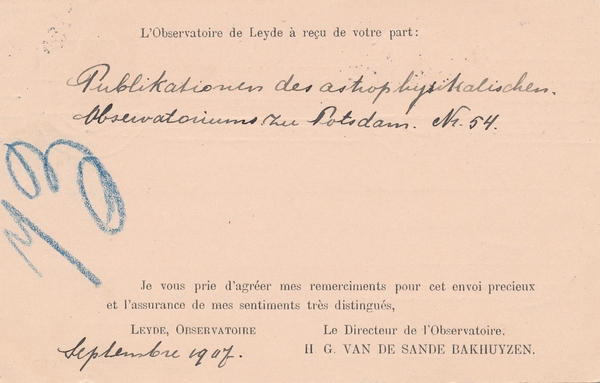 L'Observatoire de Leyde à reçu de votre part:
Publikationen des astrophysikalischen
Observatoriums zu Potsdam. Nr. 54.
Je vous prie d'agréer mes remerciments pour cet envoi precieux
et l'assurance de mes sentiments très distingués,
Leyde, Observatoire
Septembre 1907.
Le Directeur de l'Observatoire.
H. G. VAN DE SANDE BAKHUYZEN.